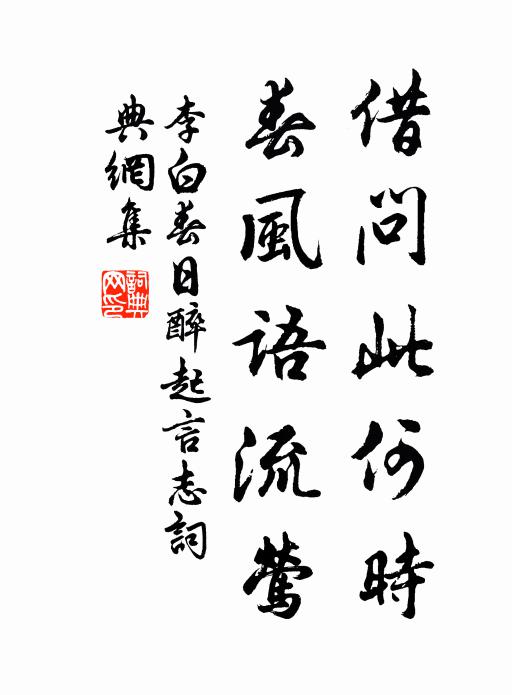 借问此何時
春風語流莺
李白春日醉起言志詞
典網集
詞典网印